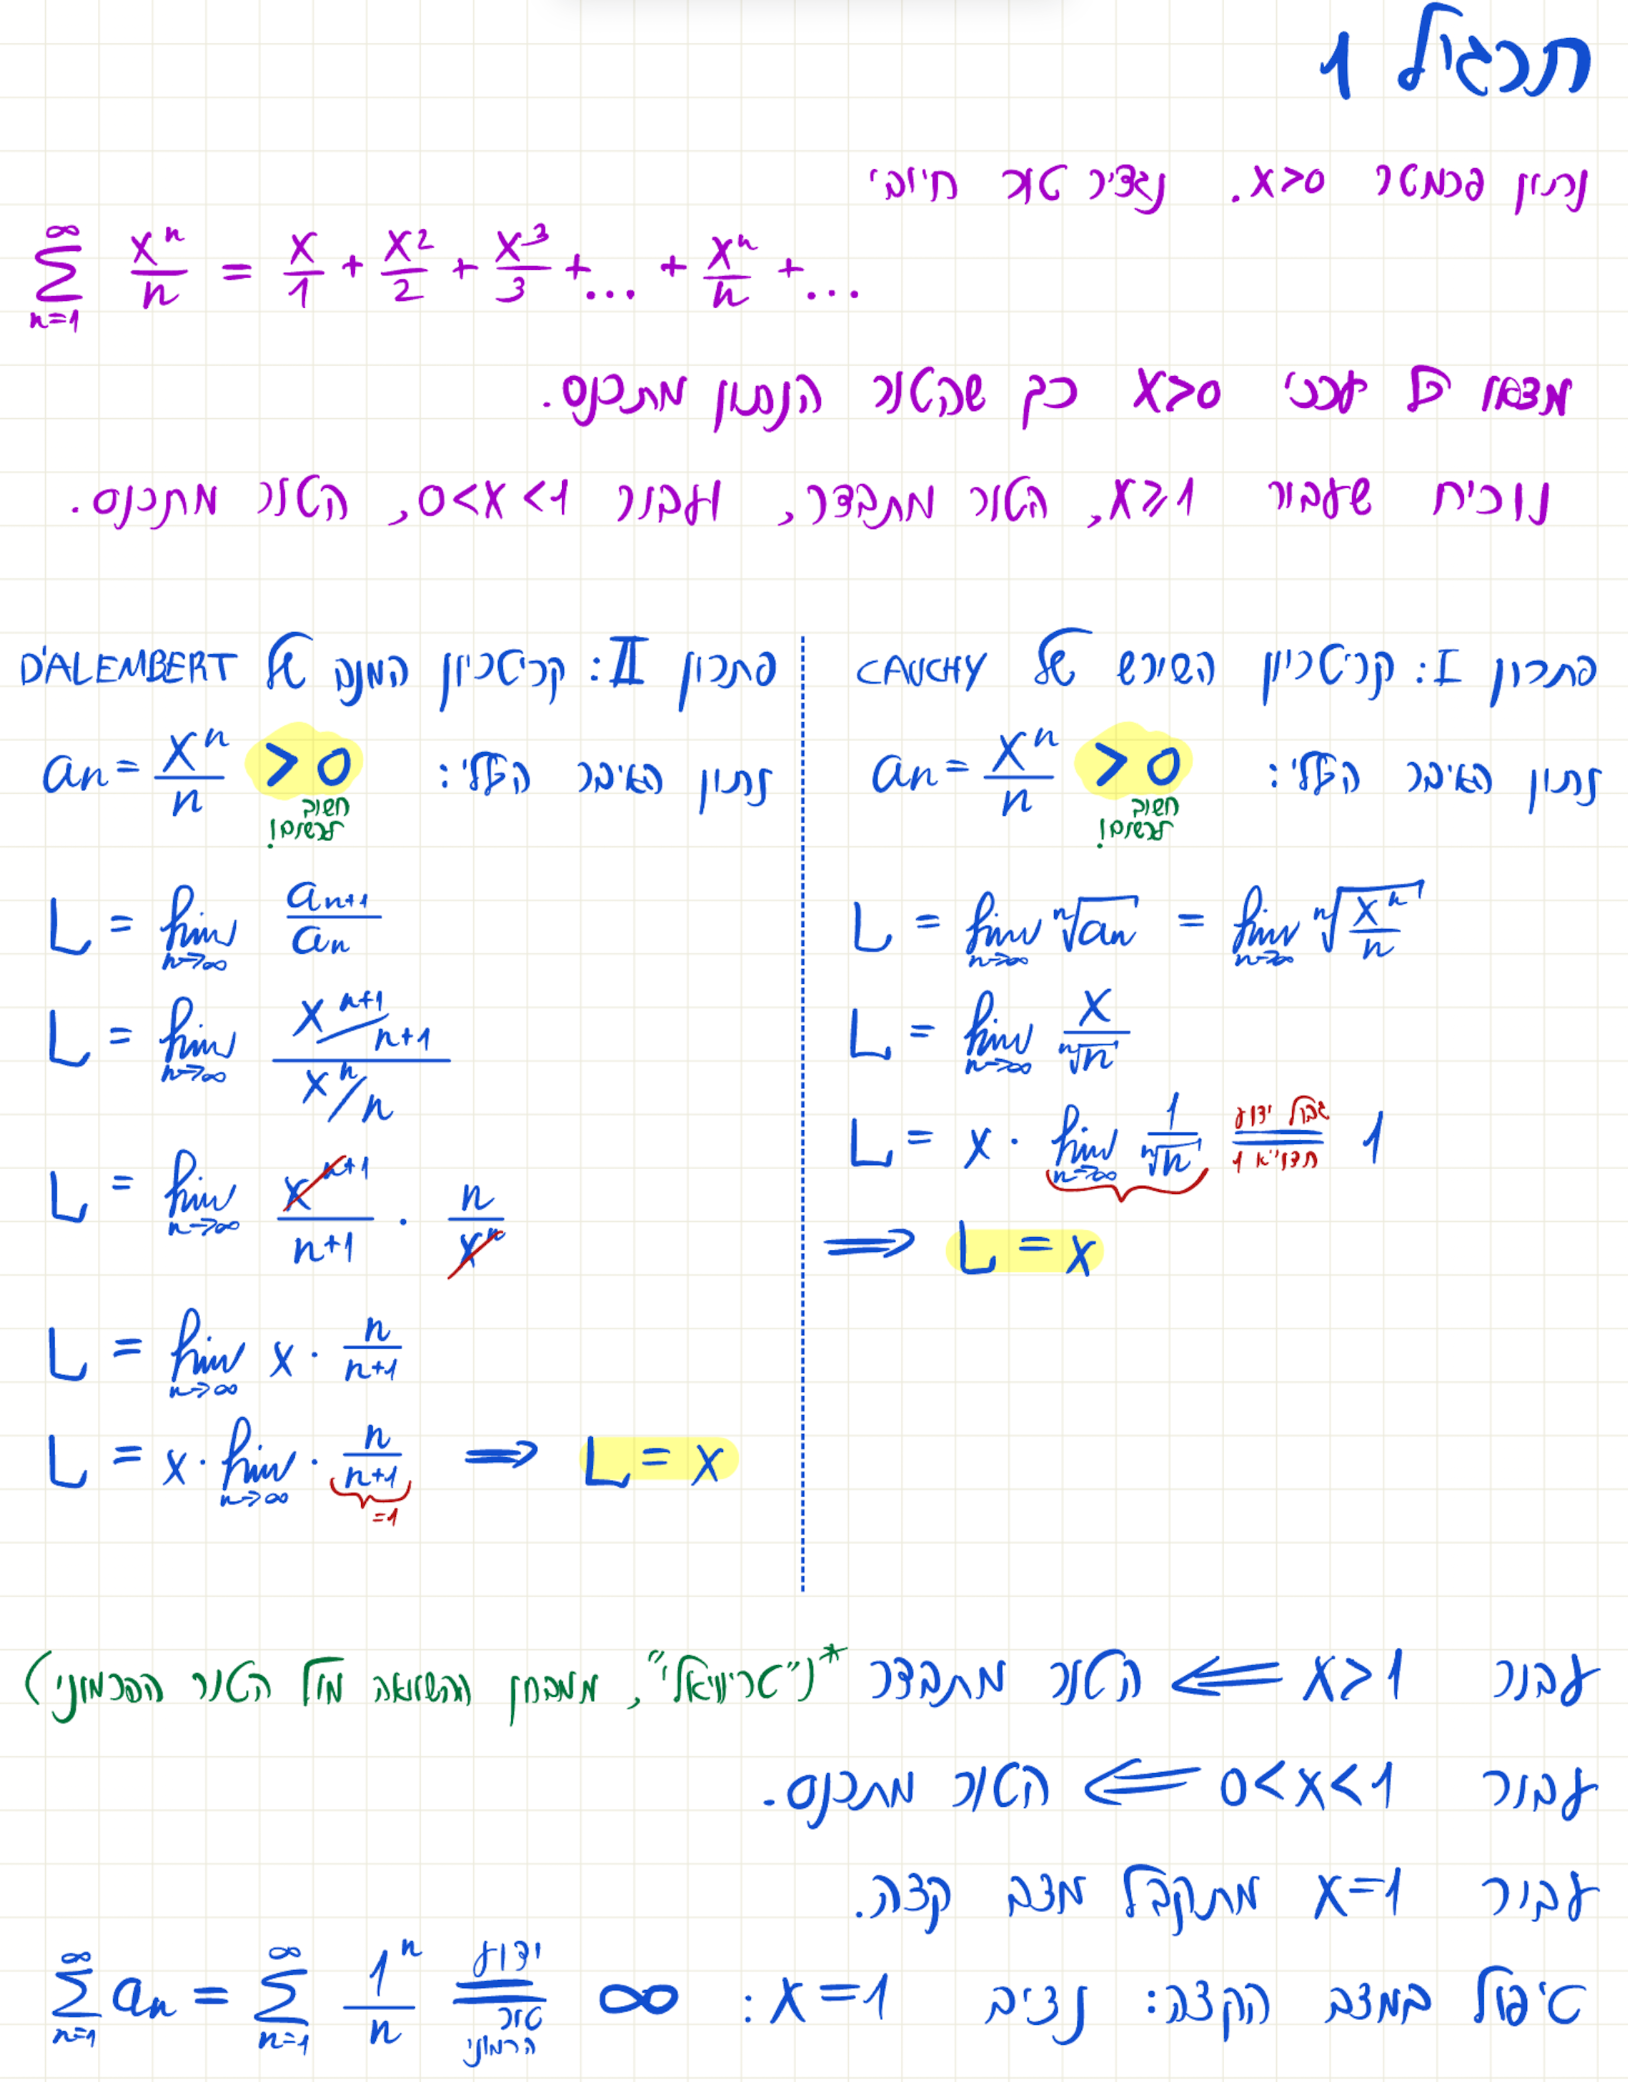 תרגיל 1
נתון פרמטר x>0. נגדיר טור חיובי
∑_{n=1}^{∞} x^n/n = x/1 + x^2/2 + x^3/3 + ... + x^n/n + ...
מצאו כל ערכי x>0 כך שהטור הנתון מתכנס.
נוכיח שעבור x⩾1, הטור מתבדר, ועבור 0<x<1, הטור מתכנס.
פתרון I: קריטריון השורש של CAUCHY
נתון האיבר הכללי: an = x^n/n > 0
חשוב
לרשום!
L = lim_{n→∞} ⁿ√an = lim_{n→∞} ⁿ√(x^n/n)
L = lim_{n→∞} x/ⁿ√n
L = x · lim_{n→∞} 1/ⁿ√n = 1
גבול ידוע
חדו"א 1
⟹ L = x
פתרון II: קריטריון המנה של D'ALEMBERT
נתון האיבר הכללי: an = x^n/n > 0
חשוב
לרשום!
L = lim_{n→∞} a_{n+1}/an
L = lim_{n→∞} (x^{n+1}/n+1)/(x^n/n)
L = lim_{n→∞} x^{n+1}/(n+1) · n/x^n
L = lim_{n→∞} x · n/(n+1)
L = x · lim_{n→∞} · n/(n+1) ⟹ L = x
=1
עבור x>1 ⟸ הטור מתבדר *("טריוויאלי", ממבחן ההשוואה מול הטור ההרמוני)
עבור 0<x<1 ⟸ הטור מתכנס.
עבור x=1 מתקבל מצב קצה.
טיפול במצב הקצה: נציב x=1 :
∑_{n=1}^{∞} an = ∑_{n=1}^{∞} 1^n/n = ∞
ידוע
טור
הרמוני